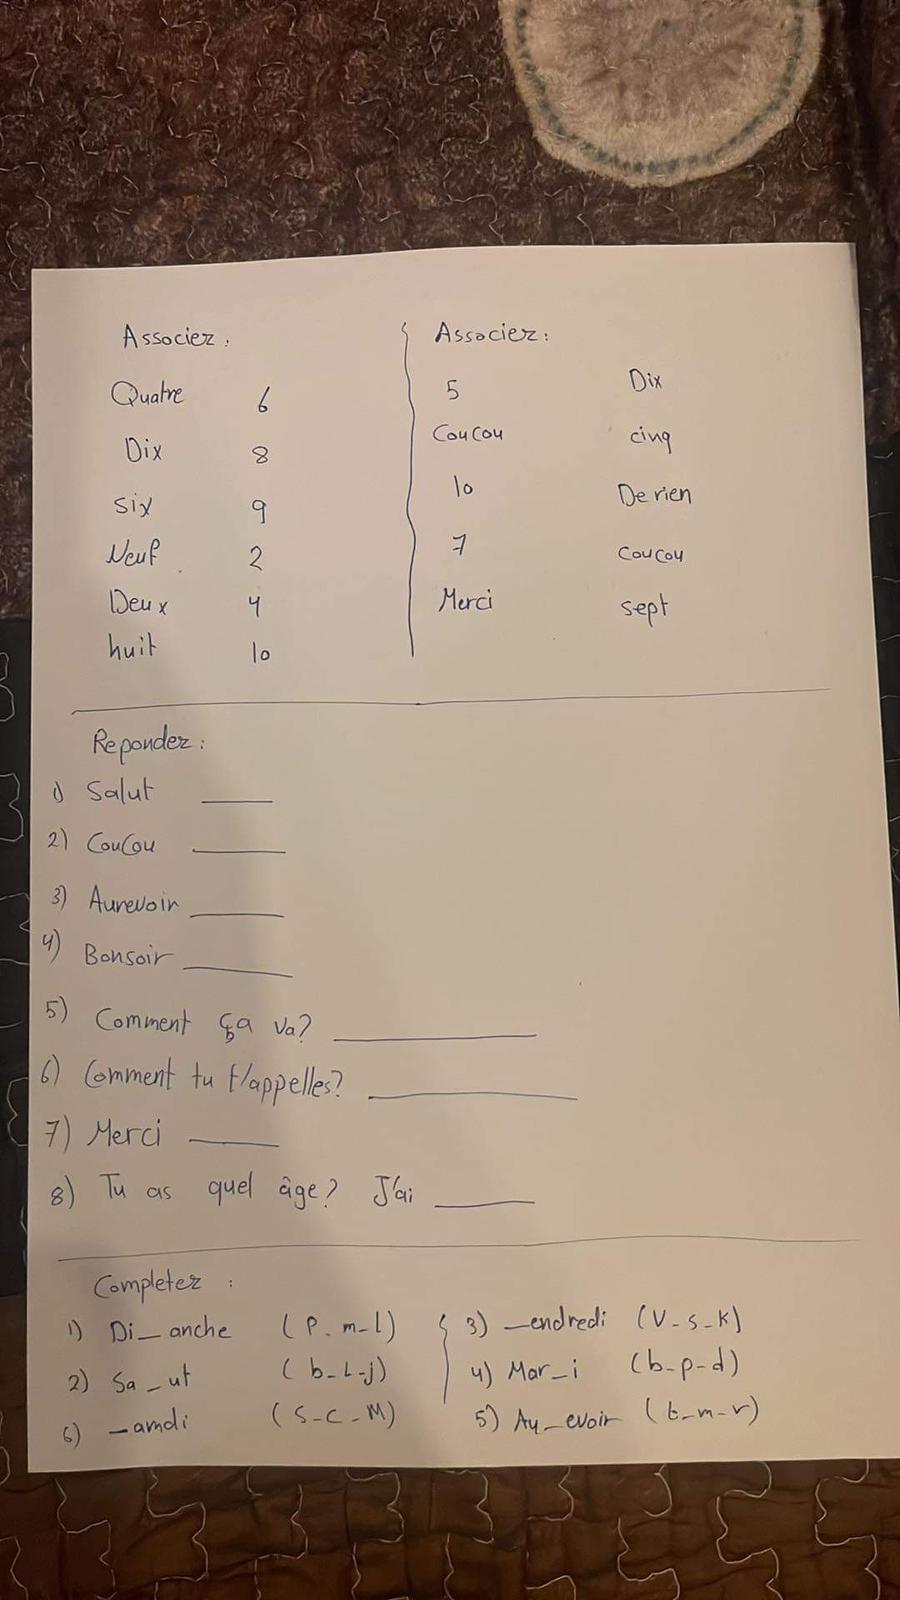 Associez :
Quatre 6
Dix 8
six 9
Neuf 2
Deux 4
huit 10
Associez :
5 Dix
Coucou cinq
10 De rien
7 Coucou
Merci sept
Repondez :
1) Salut ____
2) Coucou ____
3) Aurevoir ____
4) Bonsoir ____
5) Comment ça va? ____
6) Comment tu t'appelles? ____
7) Merci ____
8) Tu as quel âge? J'ai ____
Completez :
1) Di_anche (P-m-l)
2) Sa_ut (b-L-j)
6) _amdi (S-C-M)
3) _endredi (V-s-K)
4) Mar_i (b-p-d)
5) Au_evoir (t-m-r)